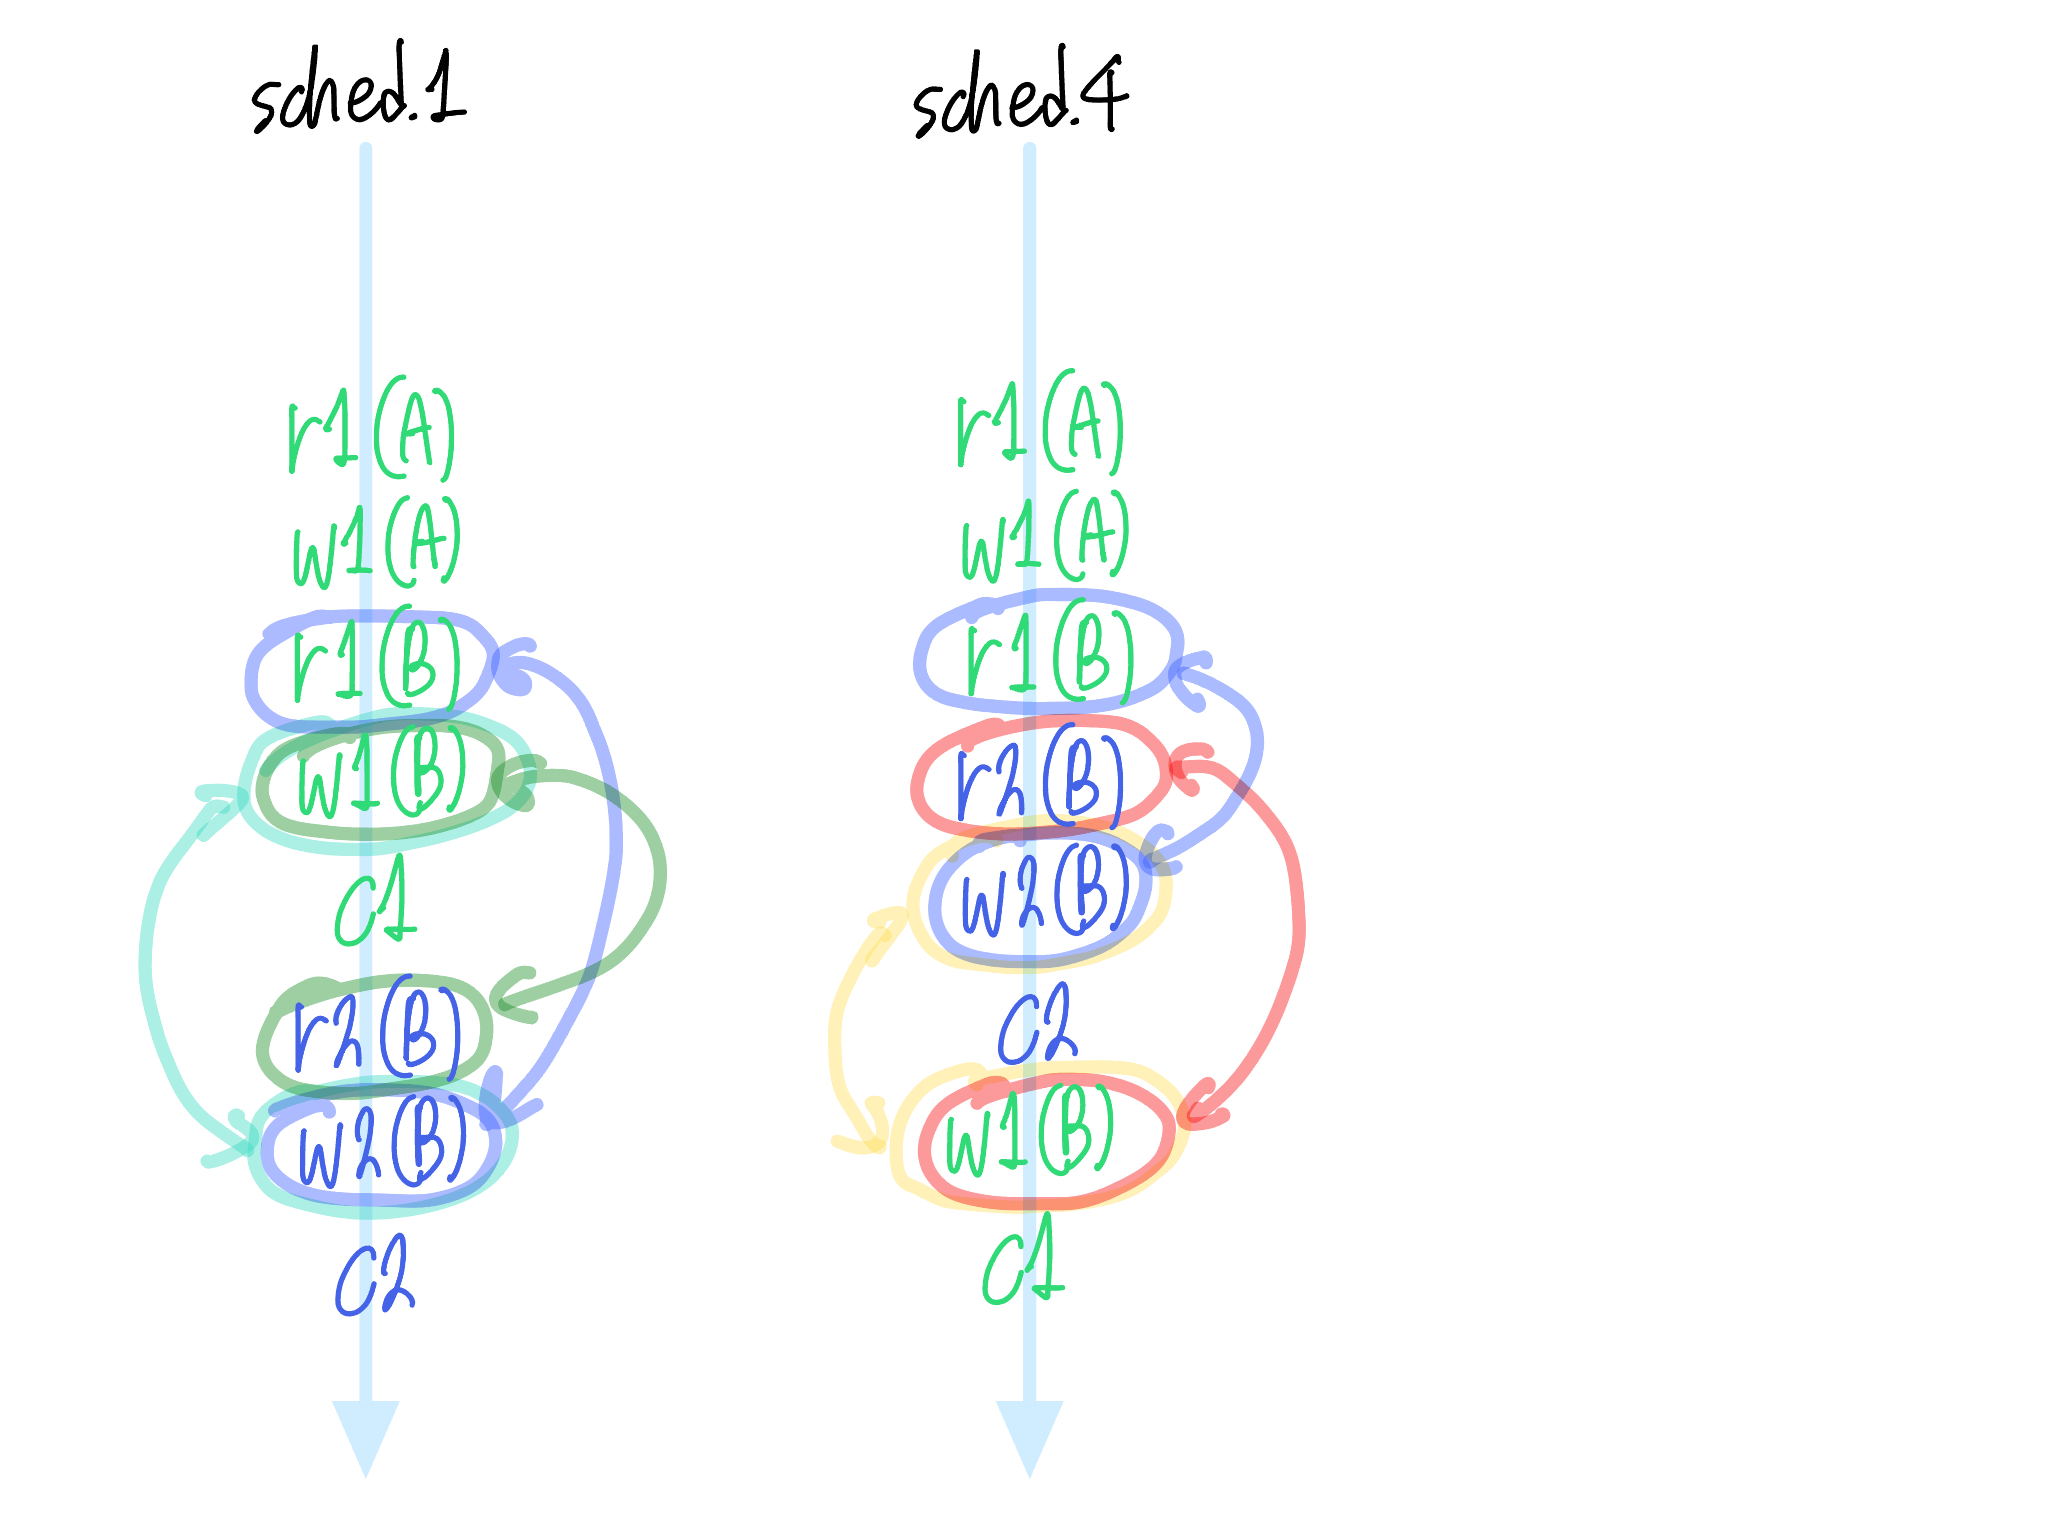 sched.1
r1(A)
w1(A)
r1(B)
w1(B)
c1
r2(B)
w2(B)
c2
sched.4
r1(A)
w1(A)
r1(B)
r2(B)
w2(B)
c2
w1(B)
c1